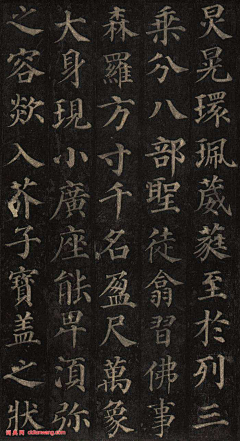 炅晃環珮葳蕤至於列三
乘分八部聖徒翕習佛事
森羅方寸千名盈尺萬象
大身現小廣座能卑湏弥
之容欻入芥子寶盖之狀